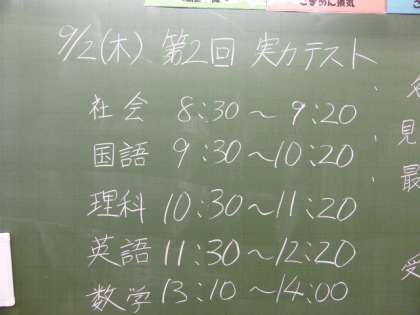 9/2(木) 第2回 実力テスト
社会 8:30〜9:20
国語 9:30〜10:20
理科 10:30〜11:20
英語 11:30〜12:20
数学 13:10〜14:00
見
最
受